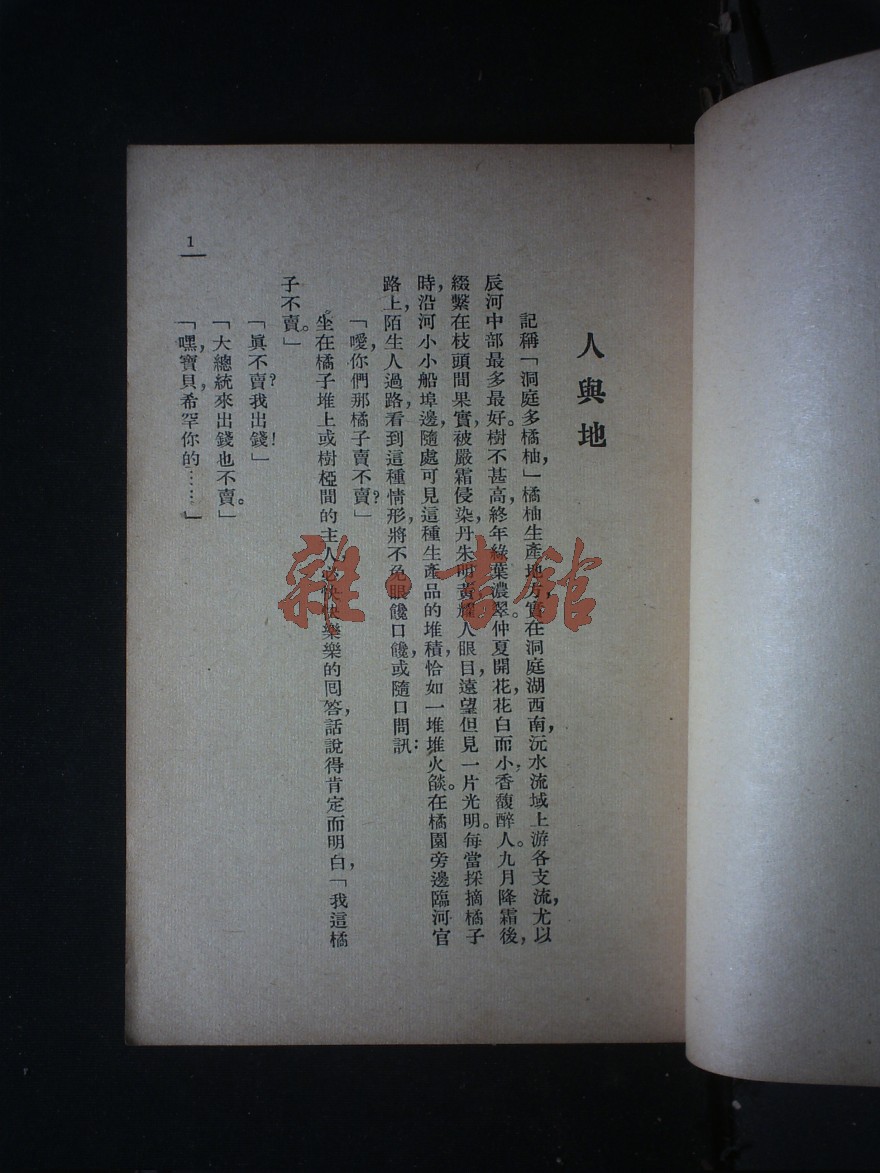 人與地
記稱「洞庭多橘柚」橘柚生產地方，實在洞庭湖西南，沅水流域上游各支流，尤以
辰河中部最多最好。樹不甚高，終年綠葉濃翠。仲夏開花，花白而小，香馥醉人。九月降霜後，
綴繫在枝頭間果實，被嚴霜侵染，丹朱明黃，耀人眼目，遠望但見一片光明。每當採摘橘子
時，沿河小小船埠邊，隨處可見這種生產品的堆積，恰如一堆堆火燄。在橘園旁邊臨河官
路上，陌生人過路，看到這種情形，將不免眼饞口饞，或隨口問訊：
「噯，你們那橘子賣不賣？」
坐在橘子堆上或樹椏間的主人，必快快樂樂的回答，話說得肯定而明白，「我這橘
子不賣。」
「真不賣？我出錢！」
「大總統來出錢也不賣。」
「嘿，寶貝，希罕你的……」
1
雜·書館